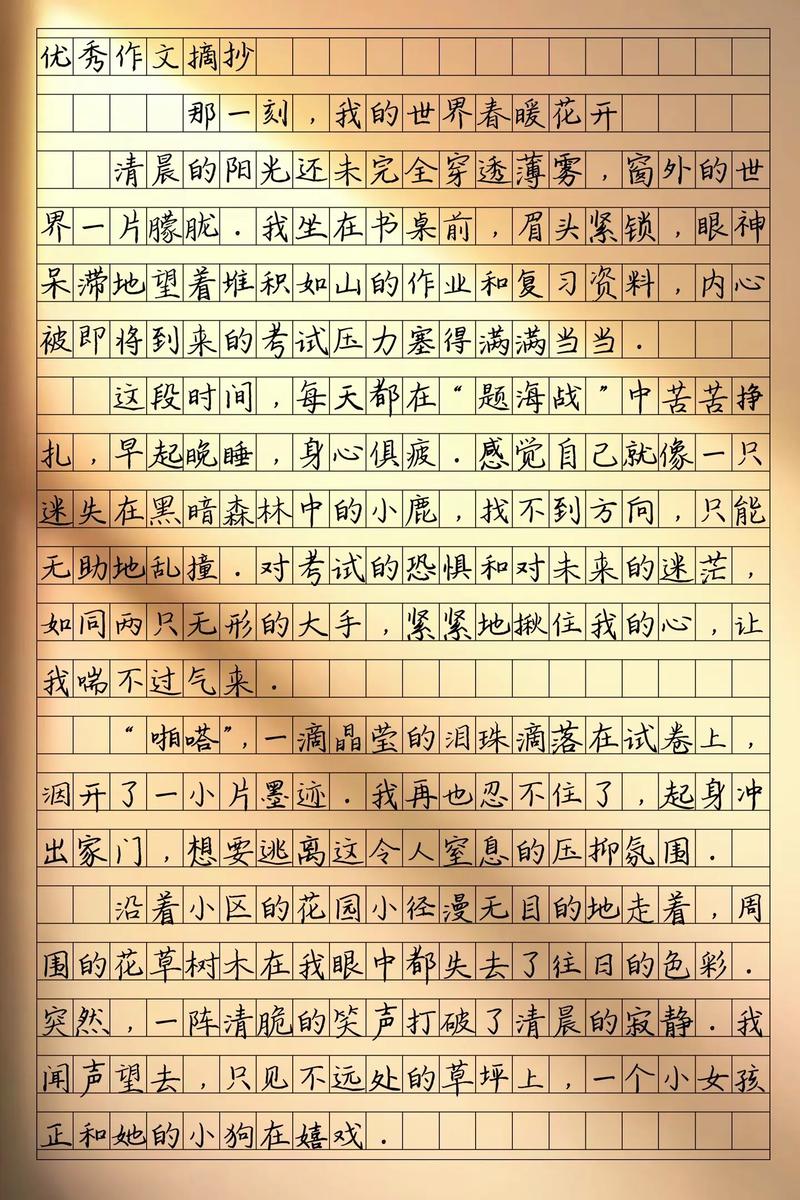 优秀作文摘抄
那一刻，我的世界春暖花开
清晨的阳光还未完全穿透薄雾，窗外的世
界一片朦胧．我坐在书桌前，眉头紧锁，眼神
呆滞地望着堆积如山的作业和复习资料，内心
被即将到来的考试压力塞得满满当当．
这段时间，每天都在“题海战”中苦苦挣
扎，早起晚睡，身心俱疲．感觉自己就像一只
迷失在黑暗森林中的小鹿，找不到方向，只能
无助地乱撞．对考试的恐惧和对未来的迷茫，
如同两只无形的大手，紧紧地揪住我的心，让
我喘不过气来．
“啪嗒”，一滴晶莹的泪珠滴落在试卷上，
洇开了一小片墨迹．我再也忍不住了，起身冲
出家门，想要逃离这令人窒息的压抑氛围．
沿着小区的花园小径漫无目的地走着，周
围的花草树木在我眼中都失去了往日的色彩．
突然，一阵清脆的笑声打破了清晨的寂静．我
闻声望去，只见不远处的草坪上，一个小女孩
正和她的小狗在嬉戏．